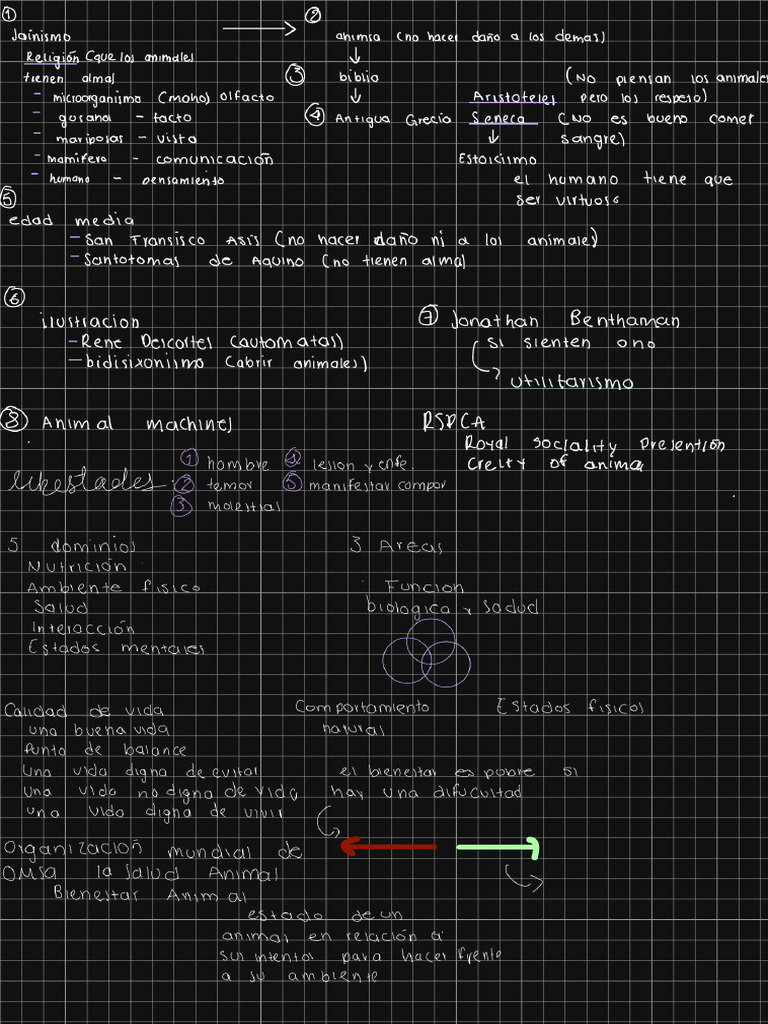 ①
Jainismo
Religión (que los animales
tienen alma)
- microorganismo (moho) olfacto
- gusano - tacto
- mariposas - vista
- mamifero - comunicación
- humano - pensamiento
②
animsa (no hacer daño a los demas)
③ biblia
④ Antigua Grecia
Aristoteles (No piensan los animales pero los respeso)
Seneca (No es bueno comer sangre)
Estoicismo
el humano tiene que
ser virtuoso
⑤
edad media
- San Fransisco Asis (no hacer daño ni a los animales)
- Santotomas de Aquino (no tienen alma)
⑥
ilustracion
- Rene Descartes (automatas)
- bidisixoniismo (abrir animales)
⑦ Jonathan Benthaman
si sienten ono
utilitarismo
⑧ Animal machines
RSPCA
Royal Sociality Presention
Crelty of anima
① hombre ④ lesion y enfe.
② temor ⑤ manifestar compor
③ molestial
5 dominios
Nutrición
Ambiente fisico
Salud
Interacción
Estados mentales
3 Areas
Funcion
biologica y salud
Comportamiento
natural
Estados fisicos
Calidad de vida
una buena vida
Punto de balance
Una vida digna de evitar
una vida no digna de vida
una vida digna de vivir
el bienestar es pobre si
hay una dificultad
Organización mundial de
OMSA la salud Animal
Bienestar Animal
estado de un
animal en relación a
sus intentos para hacer frente
a su ambiente